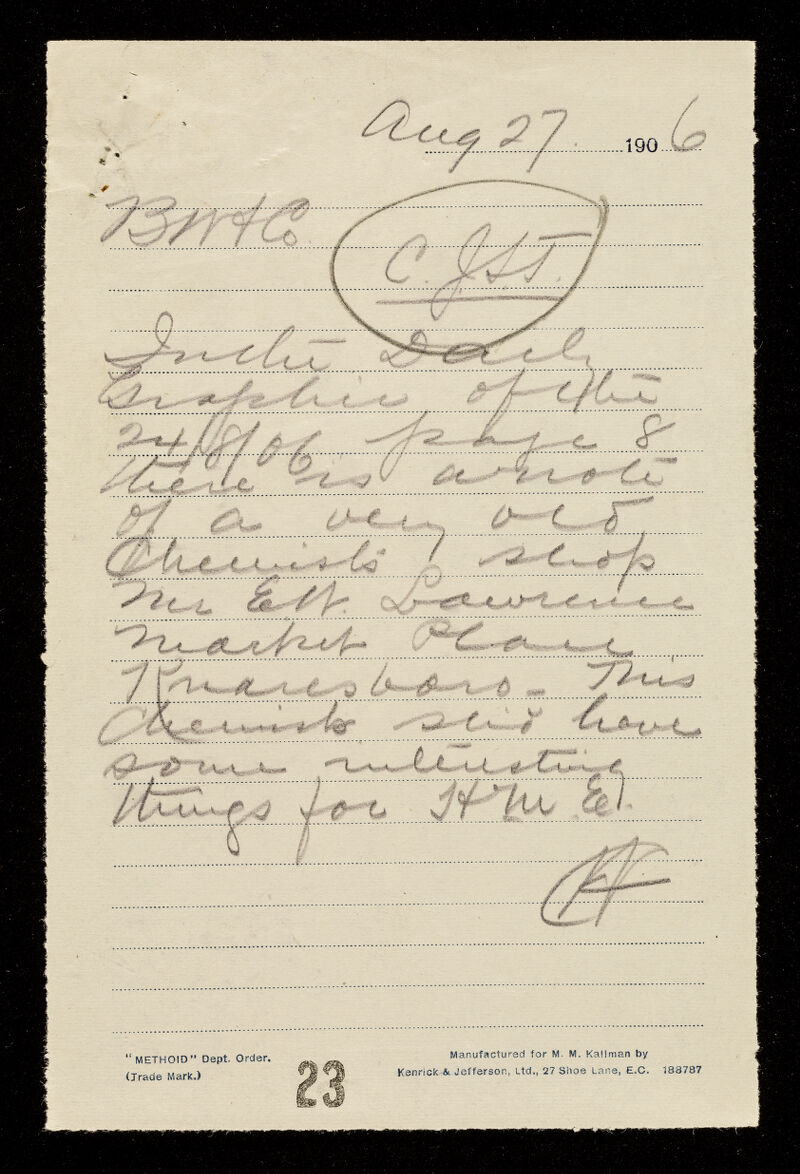 Aug 27. 1906
BW&Co.
C.J.S.T.
In the Daily
Graphic of the
24/8/06 page 8
there is a note
of a very old
Chemists shop
Mr E W. Lawrence
Market Place
Knaresboro - This
chemist shd have
some interesting
things for H M E.
"METHOID" Dept. Order.
(Trade Mark.)
23
Manufactured for M. M. Kallman by
Kenrick & Jefferson, Ltd., 27 Shoe Lane, E.C. 188787